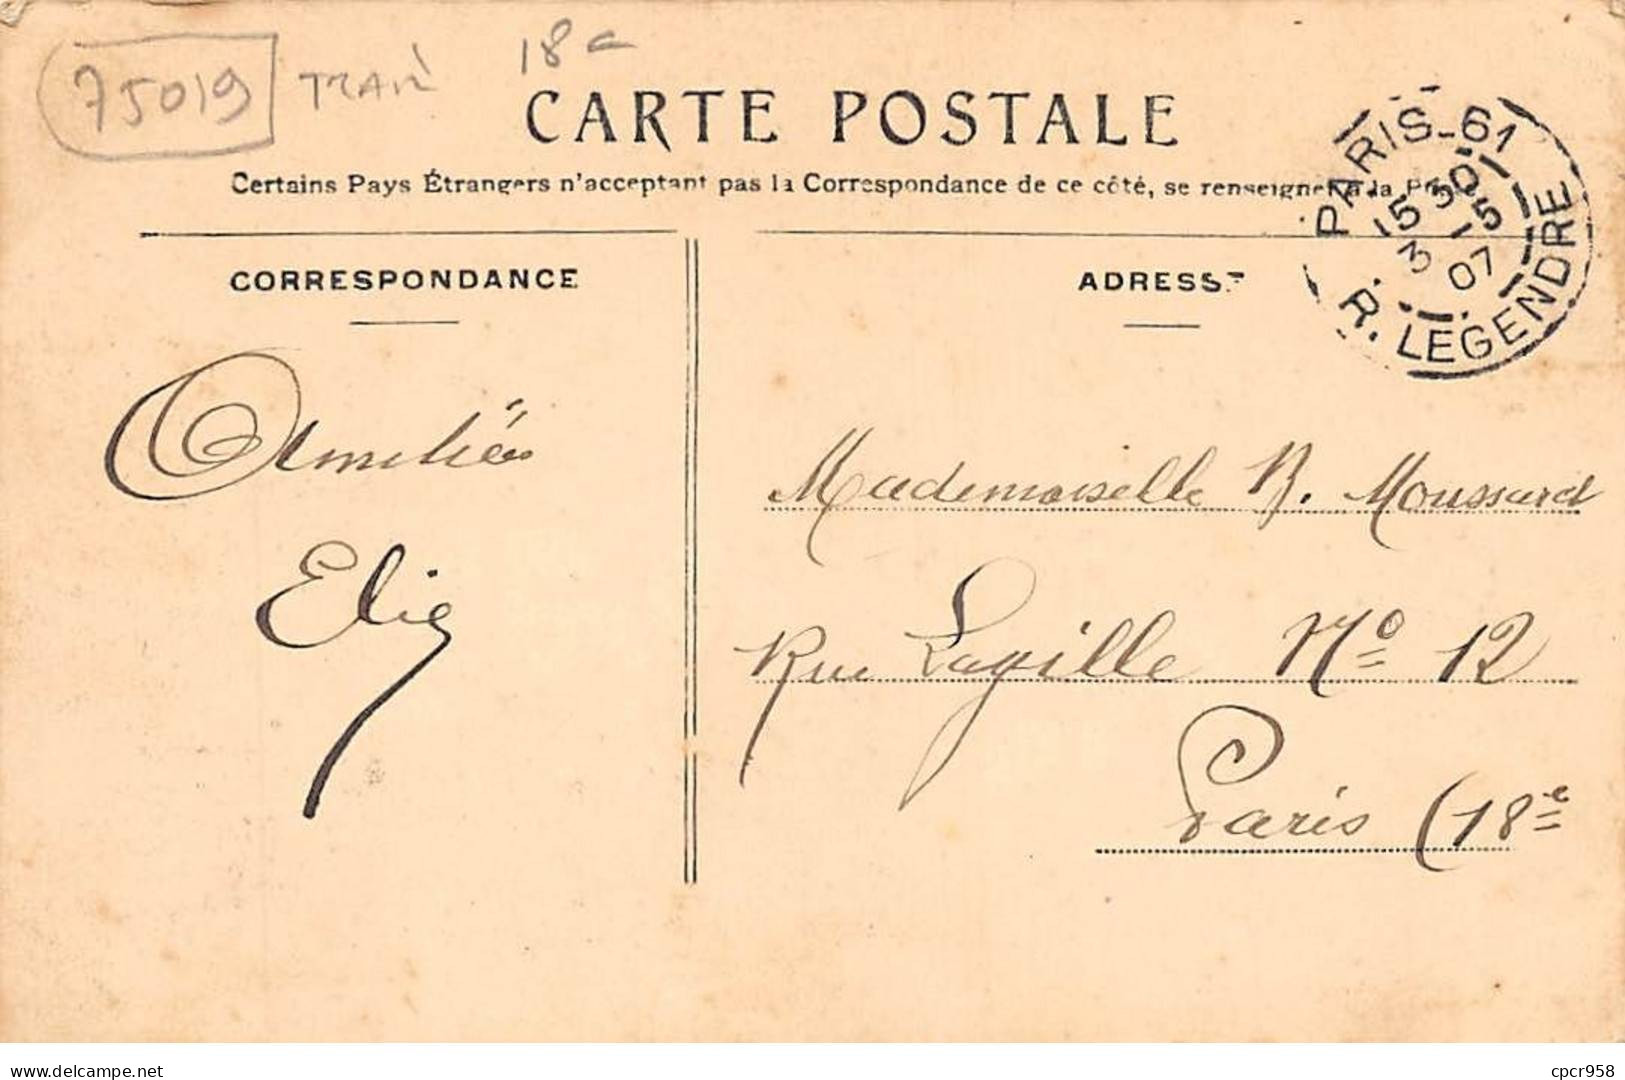 75019 TRAM 18e
CARTE POSTALE
Certains Pays Étrangers n'acceptant pas la Correspondance de ce côté, se renseigner à la Poste
PARIS-61
15 30
3 -5
07
R. LEGENDRE
CORRESPONDANCE
ADRESSE
Amitiés
Elie
Mademoiselle B. Moussard
Rue Lagille No 12
Paris (18e
Delcampe.net
cpcr958